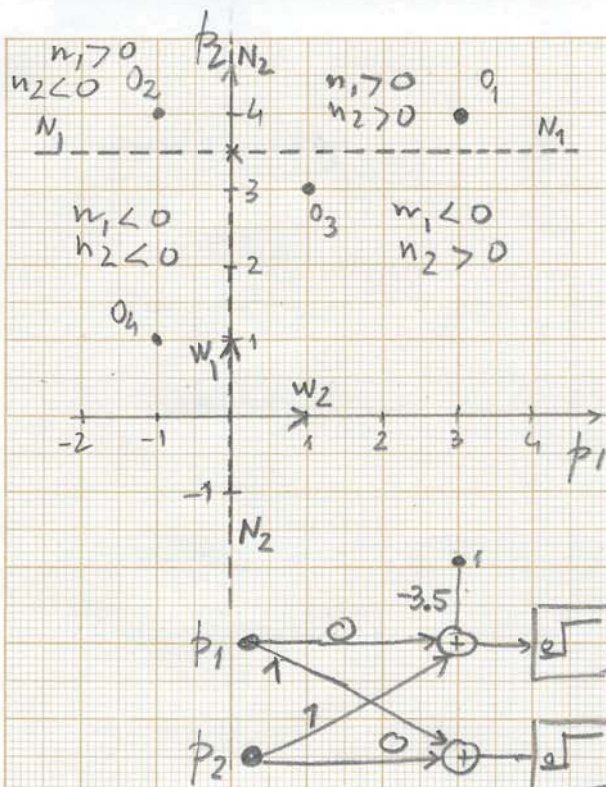 n₁>0
n₂<0
O₂
p₂
N₂
n₁>0
n₂>0
O₁
4
N₁
N₁
3
O₃
n₁<0
n₂<0
n₁<0
n₂>0
2
O₄
W₁
1
w₂
-2
-1
1
2
3
4
p₁
-1
N₂
1
-3.5
p₁
0
+
1
1
p₂
0
+